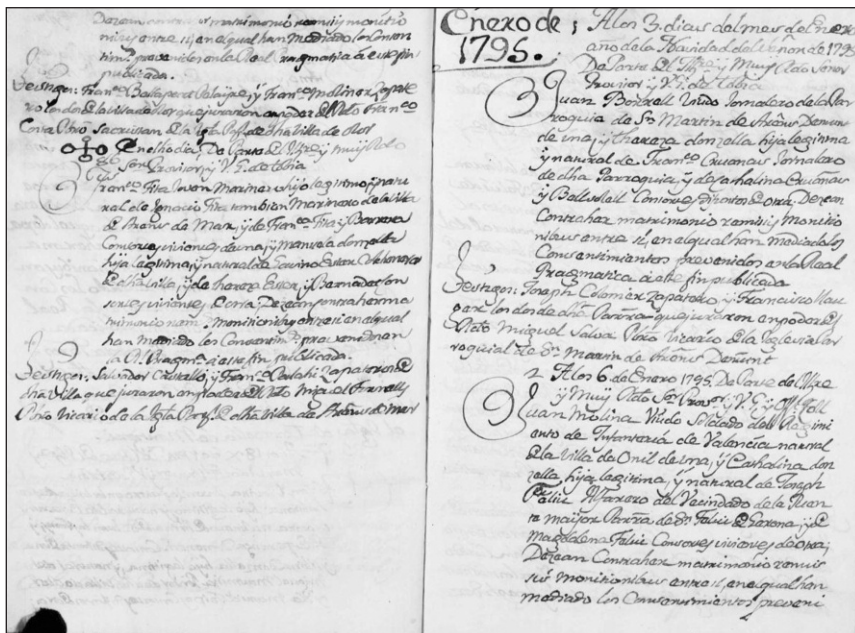 Dezean contraer matrimonio remisis monitio
nibus entre sí, en el qual han mediado los Consen
timtos prevenidos en la Real Pragmatica á este fin
publicada.
Testigos: Franco Pelaÿre, ÿ Franco Moliner Zapate
ro los dos de la Villa de Flor que juraron en poder del Rdo Franco
Costa Pbro Sacristan de la Igla Pql de dha Villa de
En dho dia, De Parte del Iltre y muy Rdo
Sor Provisor y V. G. de
Franco Fita Joven Marinero hijo legitimo y natu
ral de Ignacio Fita tambien Marinero de la Villa
de Areñs de Mar, y de Franca Fita, y
Consortes vivientes de una, y Manuela donzella
hija legitima, y natural de Ester
de dha Villa, y de Thereza Ester, y Bernadas Con
sortes vivientes de otra Dezean contraher ma
trimonio rem. monitionibus entre si en el qual
han mediado los Consentim.s prevenidos en
la Rl Pragm.ca a este fin publicada.
Testigos: Salvador Castelló, y Franco Zapateros de
dha Villa que juraron en poder del Rdo Miquel Fornells
Pbro Vicario de la Igla Parql de dha Villa de Areñs de Mar
Enero de 1795.
A los 3. dias del mes del Enero
año de la Navidad del Señor de 1795
De Parte del Iltre y Muy Rdo Señor
Provisor y V. G. de
Juan Bonrell Viudo Jornalero de la Par
roquia de Sn Martin de Areñs Demun
de una, y Thereza donzella hija legitima
y natural de Franco Crusañas Jornalero
de dha Parroquia, y de Cathalina Crusañas
y Consortes de otra; Dezean
Contraher matrimonio remisis Monitio
nibus entre sí, en el qual han mediado los
Consentimientos prevenidos en la Real
Pragmatica á este fin publicada
Testigos: Joseph Colomer Zapatero, y Francisco
los dos de dha Parrña que juraron en poder del
Rdo Miquel Salva Pbro Vicario de la Iglesia Par
roquial de Sn Martin de Areñs Demunt
2 A los 6 de Enero 1795. De Parte del Iltre
y Muy Rdo Sr Provor y V. G., y
Juan Molina Viudo Soldado del Regimi
ento de Infanteria de Valencia natural
de la Villa de Onil de una, y Cathalina don
zella, hija legitima, y natural de Joseph
Feliu Alfarero del Vecindado de la
maÿor Parrña de Sn Feliu de Gerona, y de
Magdalena Feliu Consortes vivientes de otra;
Dezean Contraher matrimonio remis
sis Monitionibus entre sí, en el qual han
mediado los Consentimientos preveni